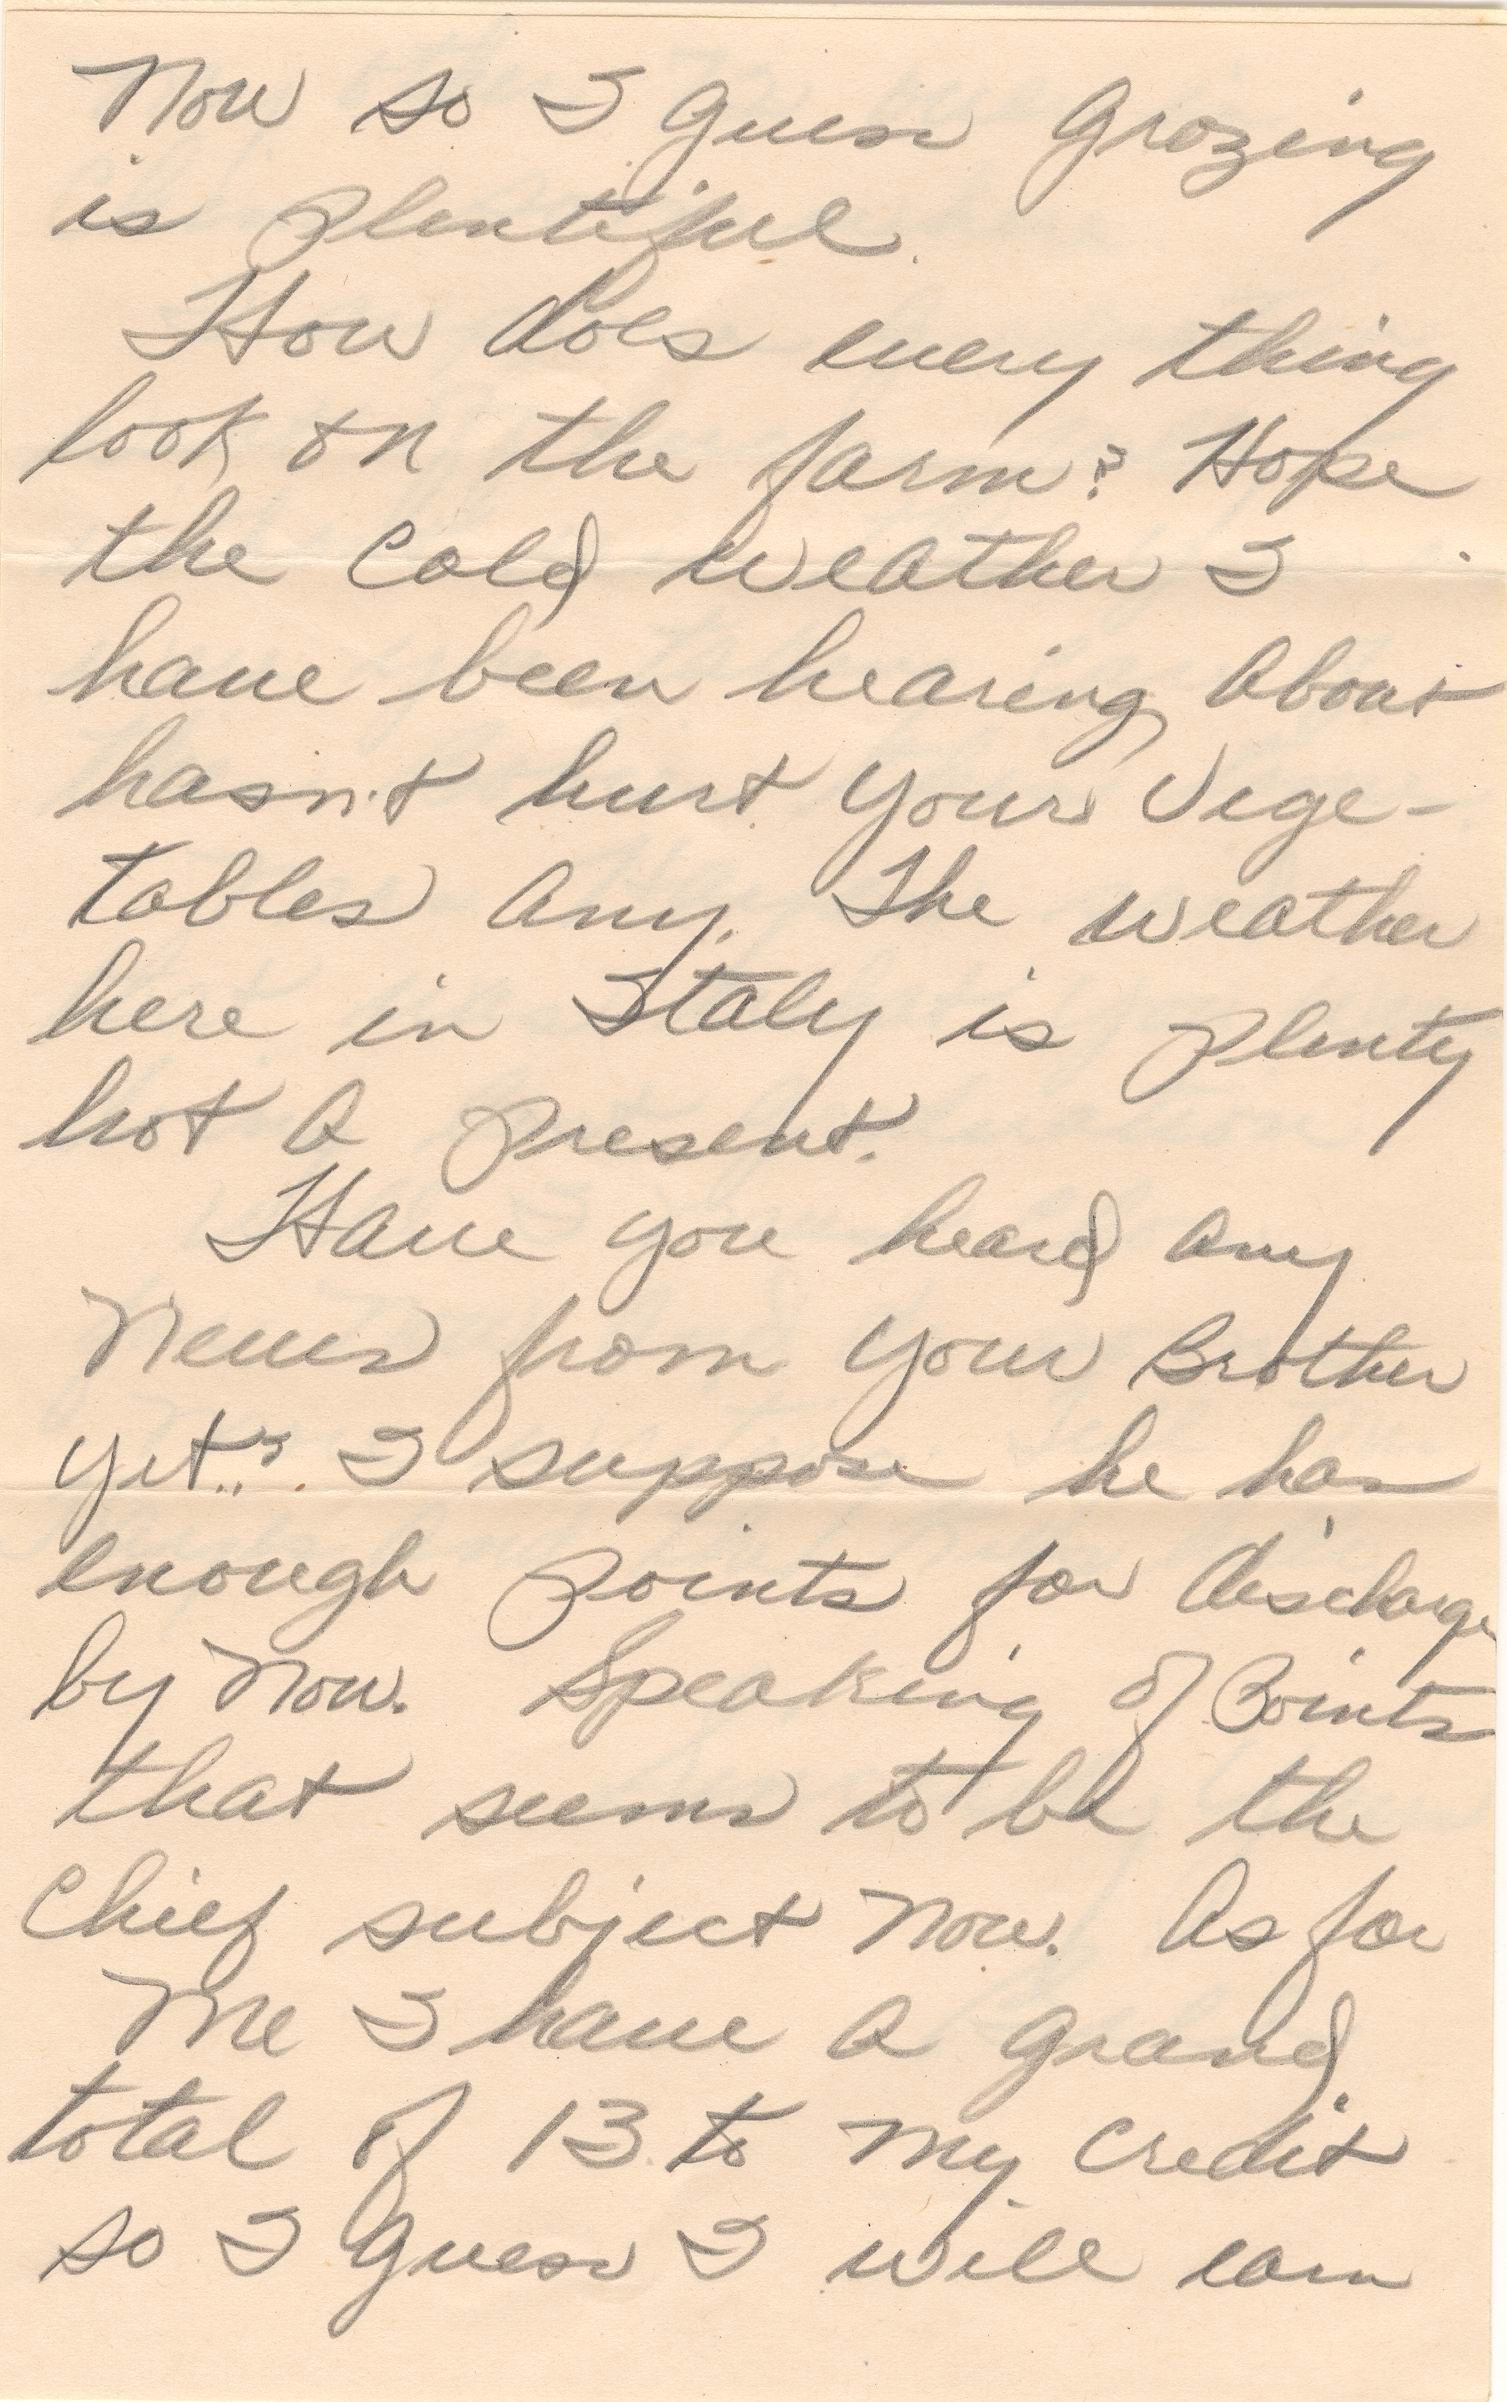 Now so I Guess Grazing
is Plentiful.
How does every thing
look on the farm? Hope
the Cold weather I
have been hearing About
hasn't hurt your Vege-
tables Any. The weather
here in Italy is Plenty
hot a Present.
Have you heard any
News from your Brother
yet? I suppose he has
enough Points for discharge
by Now. Speaking of Points
that seems to be the
Chief subject Now. As for
Me I have a grand
total of 13 to My Credit
so I Guess I will earn